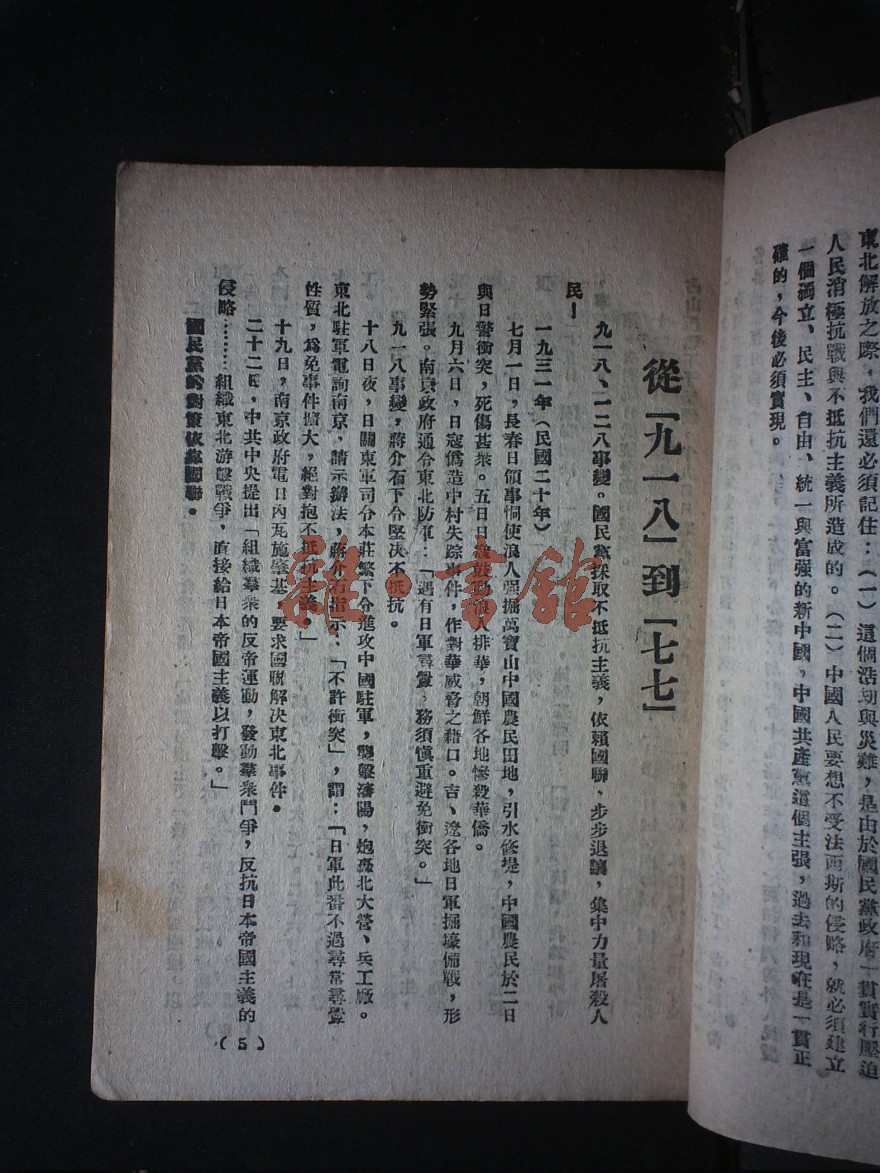 東北解放之際，我們還必須記住：（一）這個浩劫與災難，是由於國民黨政府一貫實行壓迫
人民消極抗戰與不抵抗主義所造成的。（二）中國人民要想不受法西斯的侵略，就必須建立
一個獨立、民主、自由、統一與富强的新中國，中國共產黨這個主張，過去和現在是一貫正
確的，今後必須實現。
從「九一八」到「七七」
九一八、一二八事變。國民黨採取不抵抗主義，依賴國聯，步步退讓，集中力量屠殺人
民！
一九三一年（民國二十年）
七月一日，長春日領事恫使浪人强掘萬寶山中國農民田地，引水修堤，中國農民於二日
與日警衝突，死傷甚衆。五日日寇鼓動浪人排華，朝鮮各地慘殺華僑。
九月六日，日寇僞造中村失踪事件，作對華威脅之藉口。吉、遼各地日軍掘壕備戰，形
勢緊張。南京政府通令東北防軍：「遇有日軍尋釁，務須愼重避免衝突。」
九一八事變，蔣介石下令堅决不抵抗。
十八日夜，日關東軍司令本莊繁下令進攻中國駐軍，襲擊瀋陽，炮轟北大營、兵工廠。
東北駐軍電詢南京，請示辦法，蔣介石指示：「不許衝突」，謂：「日軍此番不過尋常尋釁
性質，爲免事件擴大，絕對抱不抵抗主義。」
十九日，南京政府電日內瓦施肇基，要求國聯解決東北事件。
二十二日，中共中央提出「組織羣衆的反帝運動，發動羣衆鬥爭，反抗日本帝國主義的
侵略………組織東北游擊戰爭，直接給日本帝國主義以打擊。」
國民黨的對策依靠國聯。
(5)
雜·書館